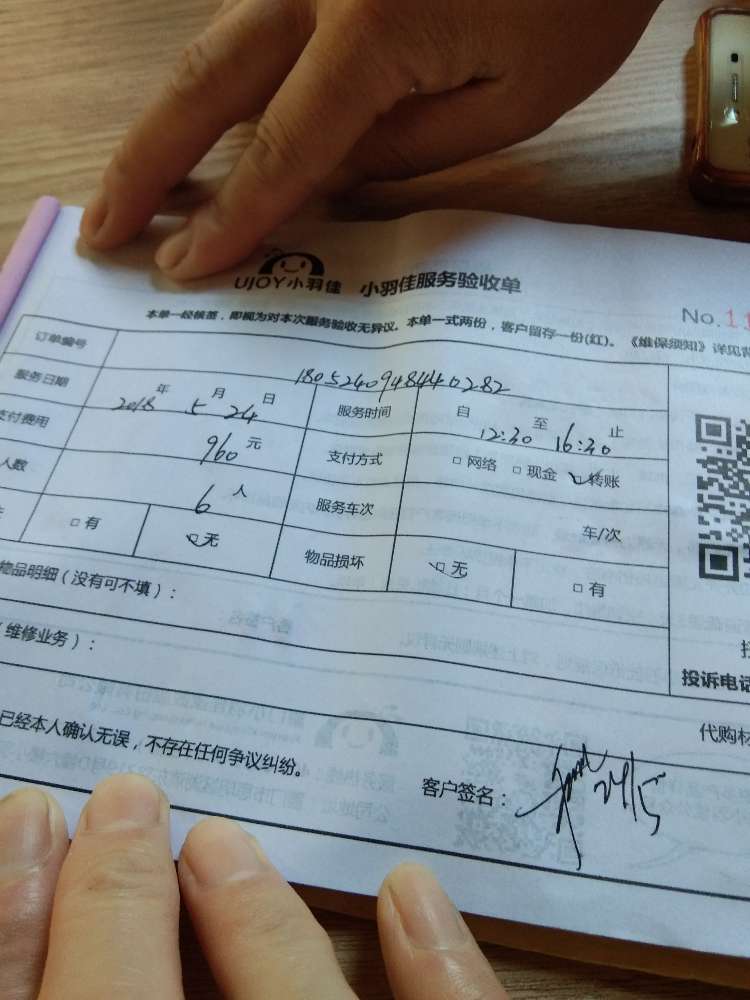 UJOY小羽佳 小羽佳服务验收单
No.11
本单一经核签，即视为对本次服务验收无异议。本单一式两份，客户留存一份(红)。《维保须知》详见背
订单编号 18052409484440282
服务日期 2018年 5月 24日 服务时间 自12:30至16:30止
支付费用 960元 支付方式 □网络 □现金 ☑转账
人数 6人 服务车次 车/次
□有 ☑无 物品损坏 ☑无 □有
物品明细（没有可不填）：
维修业务）：
投诉电话
代购材
已经本人确认无误，不存在任何争议纠纷。
客户签名： 24/5